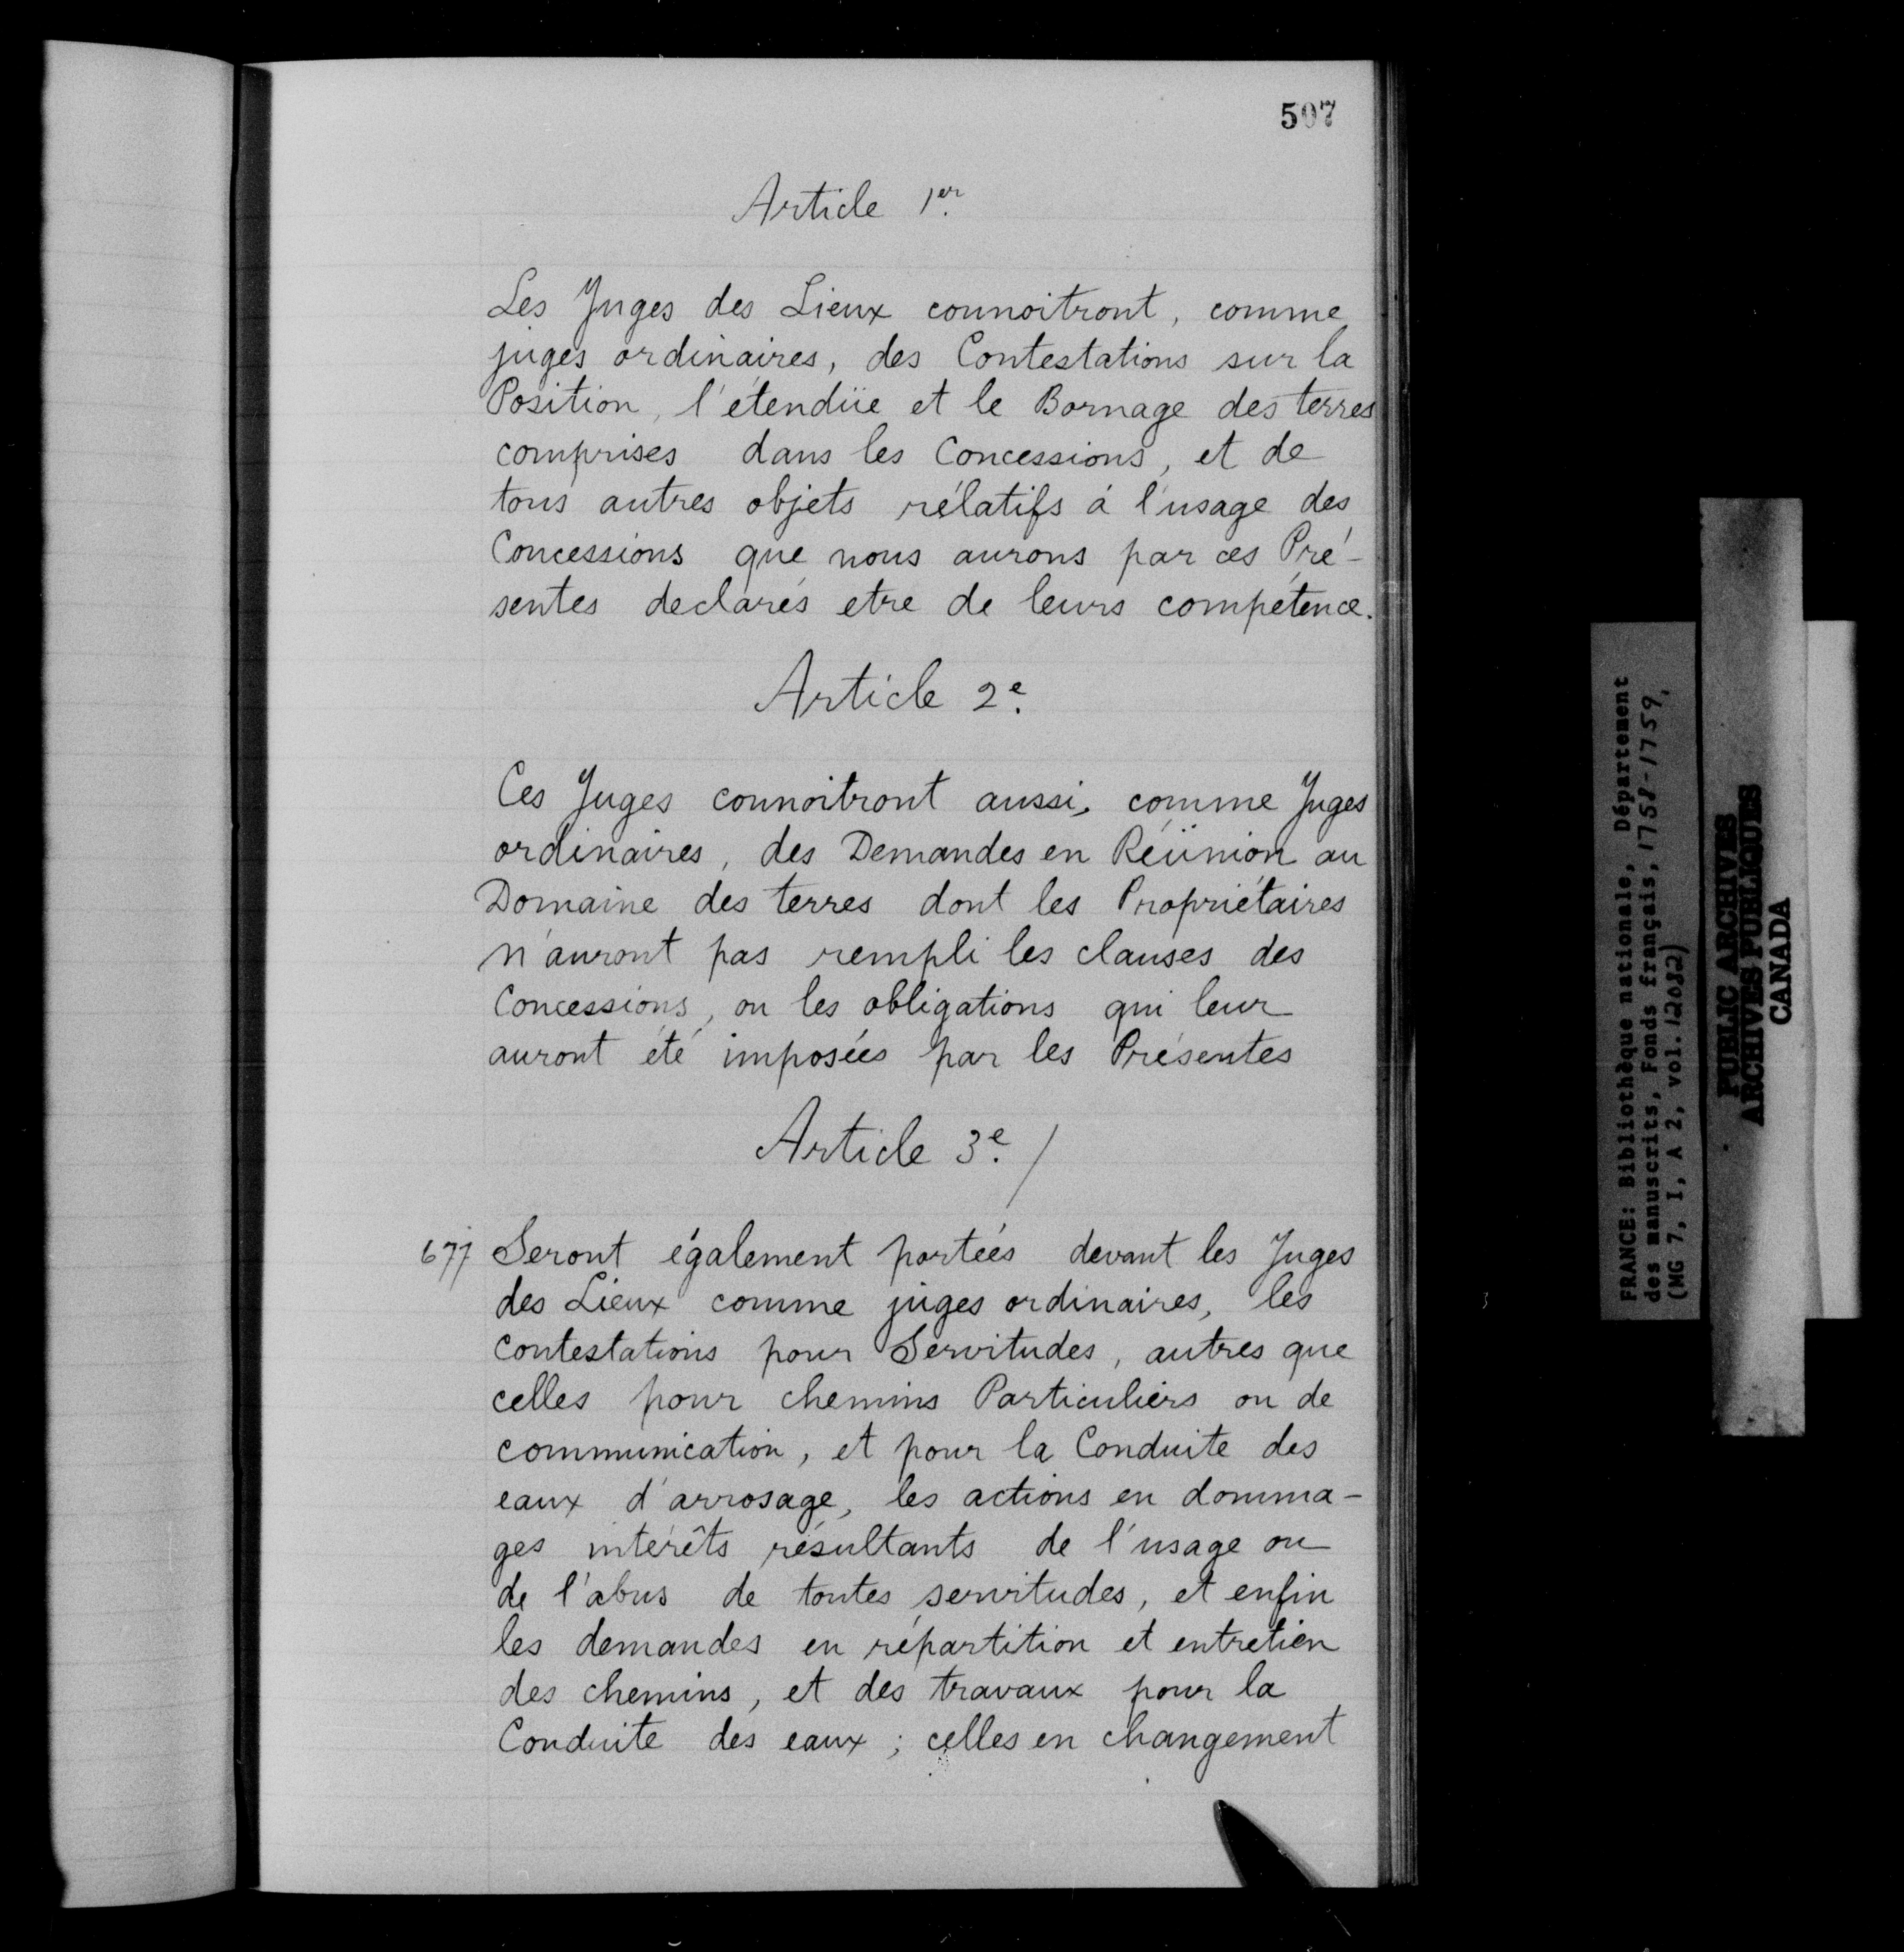 507
Article 1er.
Les Juges des Lieux connoitront, comme
juges ordinaires, des Contestations sur la
Position, l'étendüe et le Bornage des terres
comprises dans les Concessions, et de
tous autres objets rélatifs á l'usage des
Concessions que nous aurons par ces Pré-
sentes declarés etre de leurs compétence.
Article 2e.
Ces Juges connoitront aussi, comme Juges
ordinaires, des Demandes en Réünion au
Domaine des terres dont les Propriétaires
n'auront pas rempli les clauses des
Concessions, ou les obligations qui leur
auront été imposées par les Présentes
Article 3e. /
677 Seront également portées devant les Juges
des Lieux comme juges ordinaires, les
contestations pour Servitudes, autres que
celles pour chemins Particuliers ou de
communication, et pour la Conduite des
eaux d'arrosage, les actions en domma-
ges intérêts résultants de l'usage ou
de l'abus de toutes servitudes, et enfin
les demandes en répartition et entretien
des chemins, et des travaux pour la
Conduite des eaux ; celles en changement
FRANCE: Bibliothèque nationale, Département
des manuscrits, Fonds français, 1758-1759,
(MG 7, I, A 2, vol. 12032)
PUBLIC ARCHIVES
ARCHIVES PUBLIQUES
CANADA